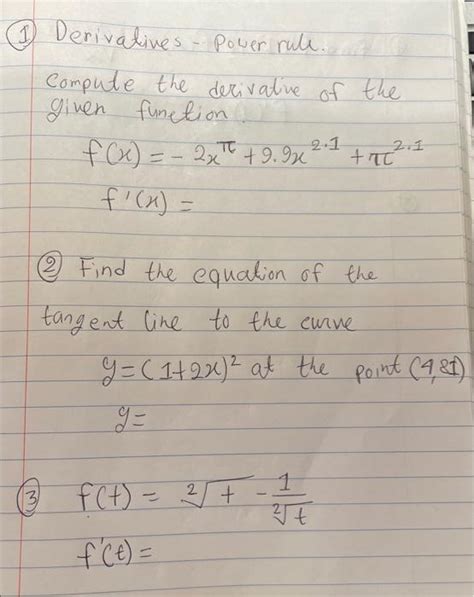 ① Derivatives - Power rule.
Compute the derivative of the
given function.
f(x) = - 2x^π + 9.9x^2.1 + π^2.1
f'(x) =
② Find the equation of the
tangent line to the curve
y = (1+2x)² at the point (4,81)
y =
③ f(t) = ²√t - 1/²√t
f'(t) =